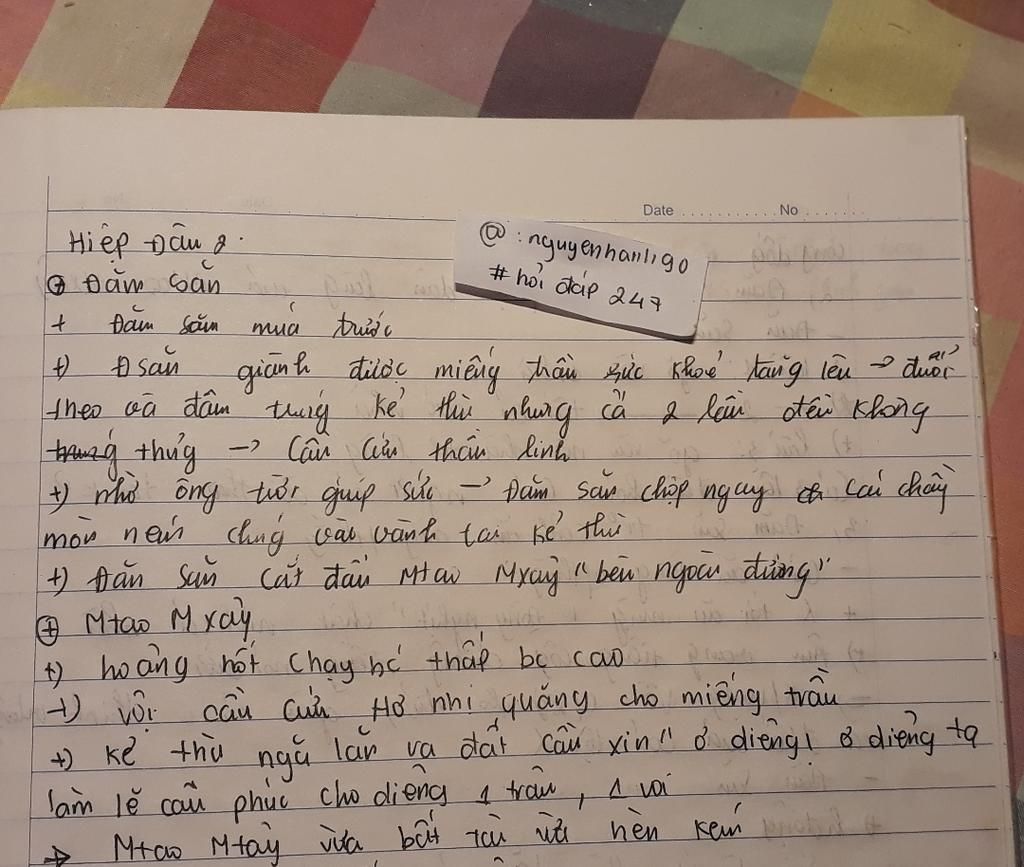 Date ........... No .......
Hiệp Đấu 2.
@: nguyenhanh190
# hỏi đáp 247
⊕ Đăm Săn
+ Đăm săn múa trước
+) Đsăn giành được miếng trầu sức khoẻ tăng lên → đuổi
theo và đâm trúng kẻ thù nhưng cả 2 lần đều không
thủng → Cầu cứu thần linh
+) nhờ ông trời giúp sức → Đăm săn chộp ngay cái chày
mòn ném chúng vào vành tai kẻ thù
+) Đăn săn cắt đầu Mtao Mxây "bêu ngoài đường"
⊕ Mtao Mxây
+) hoảng hốt chạy bc thấp bc cao
+) vội cầu cứu Hơ nhị quăng cho miếng trầu
+) kẻ thù ngã lăn ra đất cầu xin "ơ diêng! ơ diêng ta
làm lẽ cầu phúc cho diêng 1 trâu, 1 voi
→ Mtao Mtây vừa bất tài vừa hèn kém